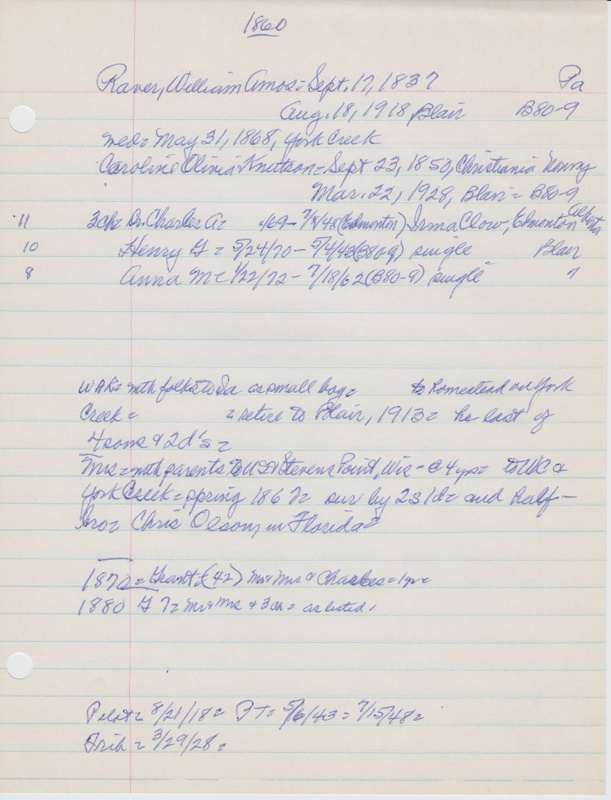 1860
Raver, William Amos = Sept. 17, 1837 Pa
Aug. 18, 1918 Blair B80-9
med = May 31, 1868, York Creek
Caroline Olivia Knutson = Sept 23, 1850, Christiania Norway
Mar. 22, 1928, Blair = B80-9
11 3ch = Dr. Charles A = /69 - 7/ /48 (Edmonton) Irma Clow, Edmonton Alberta
10 Henry G = 5/24/70 - 5/4/43 (B80-9) single Blair
8 Anna M = 1/22/72 - 7/18/62 (B80-9) single "
WAR = with folks to Ia as small boy = to homestead on York
Creek = = retire to Blair, 1913 = he last of
4 sons & 2 d's =
Mrs = with parents to USA Stevens Point, Wis - @ 4 yrs = to
York Creek = spring 1867 = surv by 2s 1d = and half-
bro = Chris Olson, in Florida =
1870 = Grant (42) Mr & Mrs & Charles = 1yr =
1880 G 7 = Mr & Mrs & 3ch = as listed,
Pilot = 8/21/18 = FT = 5/6/43 = 7/15/48 =
Trib = 3/29/28 =